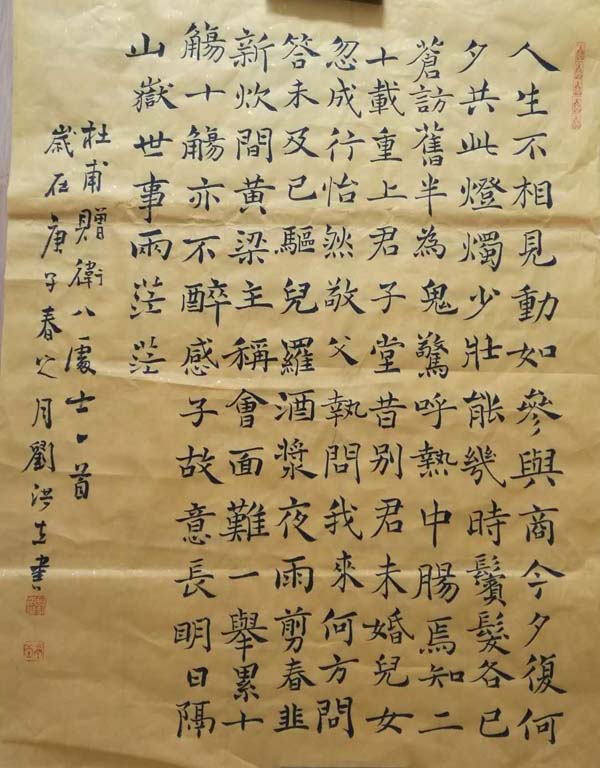 人生不相見動如參與商今夕復何
夕共此燈燭少壯能幾時鬢髮各已
蒼訪舊半為鬼驚呼熱中腸焉知二
十載重上君子堂昔別君未婚兒女
忽成行怡然敬父執問我來何方問
答未及已驅兒羅酒漿夜雨剪春韭
新炊間黃梁主稱會面難一舉累十
觴十觴亦不醉感子故意長明日隔
山嶽世事兩茫茫
杜甫贈衛八處士一首
歲在庚子春月劉洪書